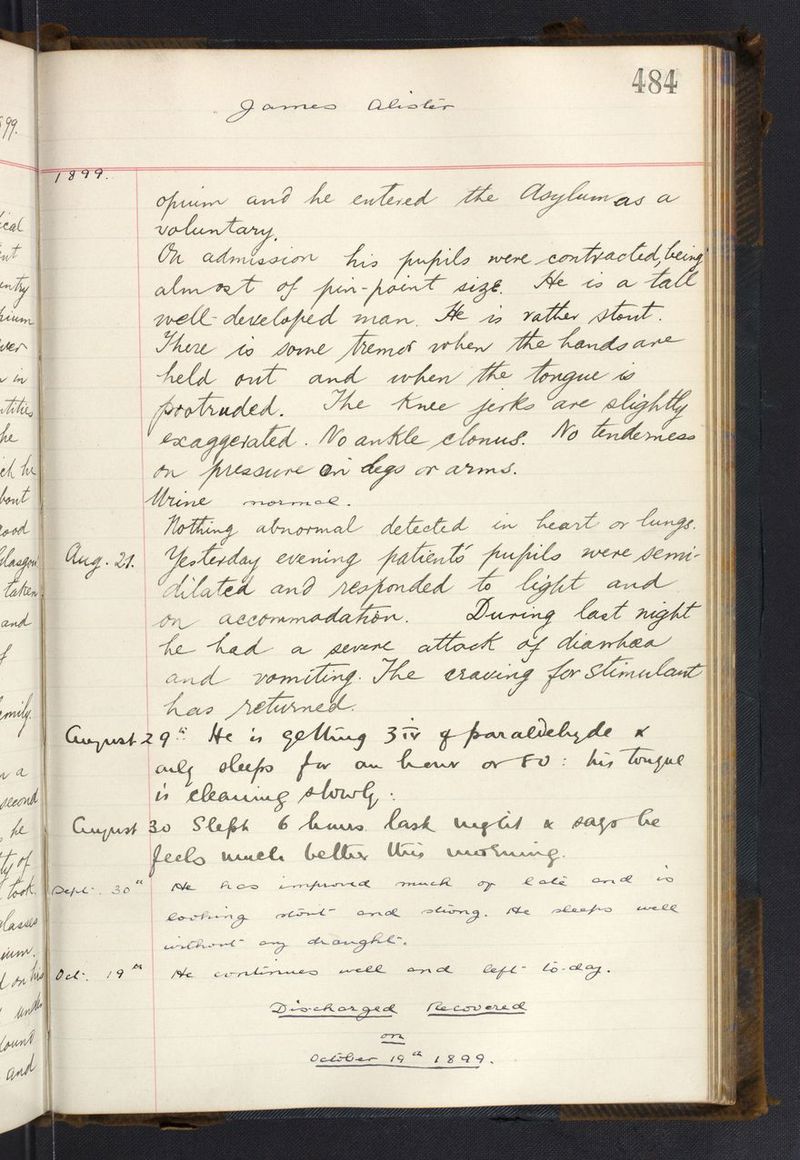 484
James Alister
1899.
opium and he entered the Asylum as a
voluntary.
On admission his pupils were contracted, being
almost of pin-point size. He is a tall
well-developed man. He is rather stout.
There is some tremor when the hands are
held out and when the tongue is
protruded. The Knee jerks are slightly
exaggerated. No ankle clonus. No tenderness
on pressure on legs or arms.
Urine normal.
Nothing abnormal detected in heart or lungs.
Aug. 21. Yesterday evening patient's pupils were semi-
dilated and responded to light and
on accommodation. During last night
he had a severe attack of diarrhœa
and vomiting. The craving for stimulant
has returned.
August 29th He is getting ʒiv of paraldehyde &
only sleeps for an hour or so: his tongue
is cleaning slowly:
August 30 Slept 6 hours last night & says he
feels much better this morning.
Sept. 30th He has improved much of late and is
looking stout and strong. He sleeps well
without any draught.
Oct. 19th He continues well and left to-day.
Discharged Recovered
on
October 19th 1899.